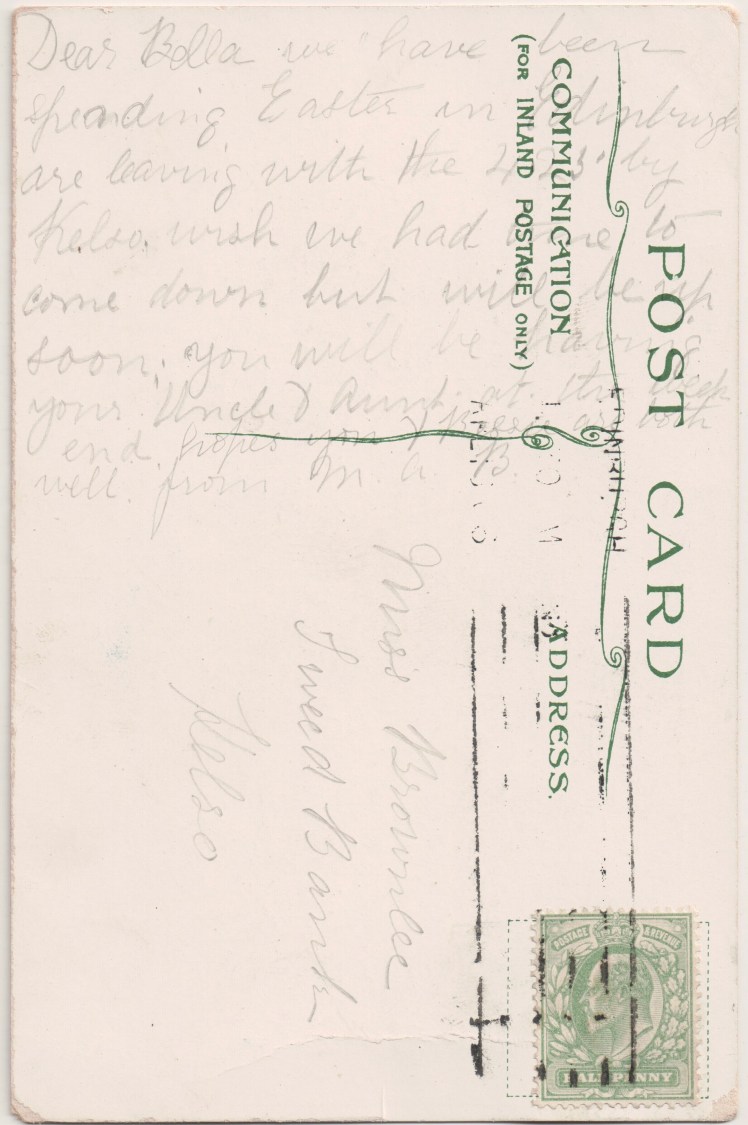 Dear Bella we have been
spending Easter in Edinburgh
are leaving with the 4.25 by
Kelso. wish we had time to
come down but will be up
soon. you will be having
your Uncle & Aunt at the week
end hopes you & are both
well. from M. A. B.
POST CARD
COMMUNICATION
(FOR INLAND POSTAGE ONLY)
ADDRESS.
Miss Brownlee
Tweed Bank
Kelso
EDINBURGH
POSTAGE & REVENUE
HALFPENNY